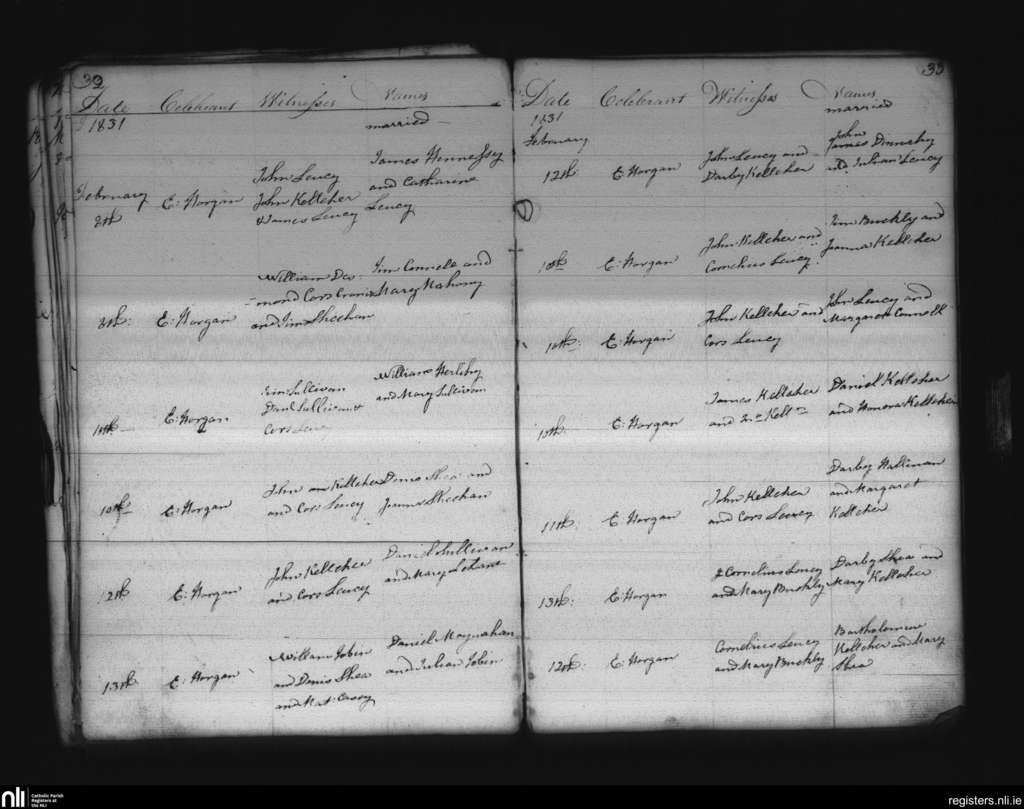 32
Date Celebrant Witnesses Names
1831 married
February
8th E: Horgan John Lucey James Hennessy
John Kelleher and Catharine
& James Lucey Lucey
8th: E: Horgan William Des- Tim Connell and
mond Cors Cronin Mary Mahony
and Tim Sheehan
10th E: Horgan Tim Sullivan William Herlihy
Danl Sullivan & and Mary Sullivan
Cors Lucey
10th E: Horgan John Kelleher Denis Shea and
and Cors Lucey Joanna Sheehan
12th E: Horgan John Kelleher Daniel Sullivan
and Cors Lucey and Mary Lehane
13th E: Horgan William Tobin Daniel Moynahan
and Denis Shea and Julian Tobin
and Mat: Casey
33
Date Celebrant Witnesses Names
1831 married
February
12th E Horgan John Lucey and John
Darby Kelleher James Dinneby
and Julian Lucey
10th E: Horgan John Kelleher and Tim Buckly and
Cornelius Lucey Joanna Kelleher
10th: E: Horgan John Kelleher and John Lucey and
Cors Lucey Margaret Connell
10th E: Horgan James Kelleher Daniel Kelleher
and and Honora Kelleher
11th: E: Horgan John Kelleher Darby
and Cors Lucey and Margaret
Kelleher
13th: E: Horgan Cornelius Lucey Darby Shea and
and Mary Buckley Mary Kelleher
12th: E: Horgan Cornelius Lucey Bartholomew
and Mary Buckley Kelleher and Mary
Shea
nli Catholic Parish
Registers at
the NLI
registers.nli.ie